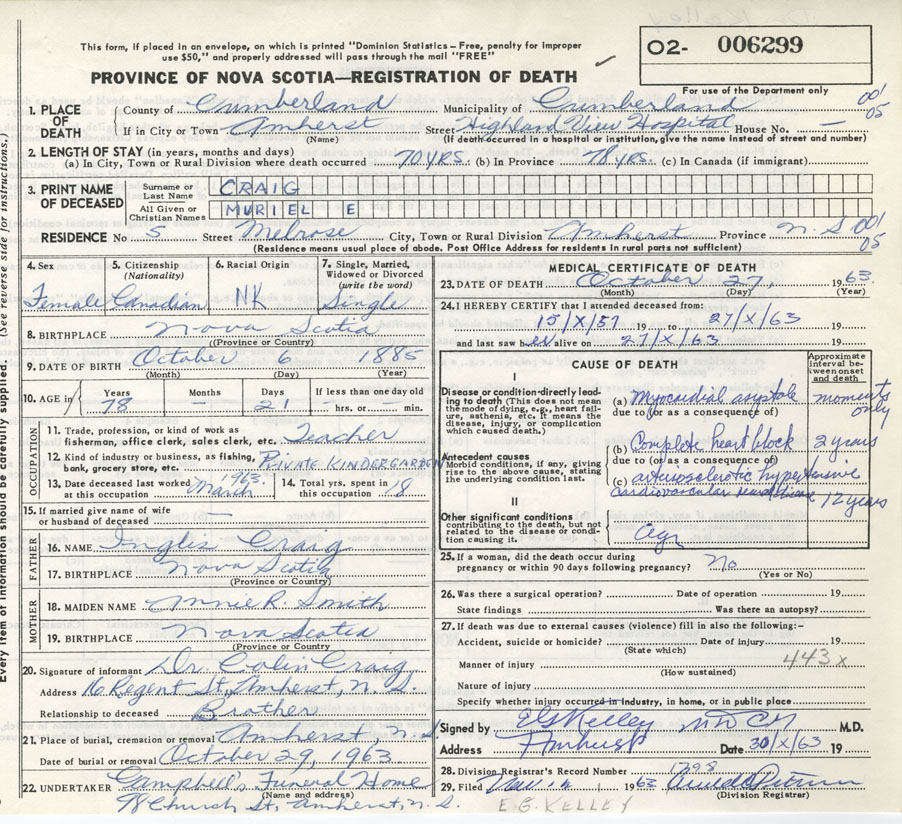 This form, if placed in an envelope, on which is printed "Dominion Statistics – Free, penalty for improper
use $50," and properly addressed will pass through the mail "FREE"
O2- 006299
PROVINCE OF NOVA SCOTIA—REGISTRATION OF DEATH
For use of the Department only
1. PLACE OF DEATH
County of Cumberland Municipality of Cumberland 001 05
If in City or Town Amherst Street Highland View Hospital House No. —
(Name) (If death occurred in a hospital or institution, give the name instead of street and number)
2. LENGTH OF STAY (in years, months and days)
(a) In City, Town or Rural Division where death occurred 70 yrs. (b) In Province 78 yrs. (c) In Canada (if immigrant)
3. PRINT NAME OF DECEASED
Surname or Last Name CRAIG
All Given or Christian Names MURIEL E
RESIDENCE No 5 Street Melrose City, Town or Rural Division Amherst Province N. S 001 05
(Residence means usual place of abode. Post Office Address for residents in rural parts not sufficient)
4. Sex Female
5. Citizenship (Nationality) Canadian
6. Racial Origin NK
7. Single, Married, Widowed or Divorced (write the word) Single
8. BIRTHPLACE Nova Scotia
(Province or Country)
9. DATE OF BIRTH October 6 1885
(Month) (Day) (Year)
10. AGE in Years 78 Months – Days 21 If less than one day old – hrs. or min.
OCCUPATION
11. Trade, profession, or kind of work as
fisherman, office clerk, sales clerk, etc. Teacher
12. Kind of industry or business, as fishing,
bank, grocery store, etc. PRIVATE KINDERGARDEN
13. Date deceased last worked at this occupation March 1963.
14. Total yrs. spent in this occupation 18
15. If married give name of wife
or husband of deceased —
FATHER
16. NAME Inglis Craig
17. BIRTHPLACE Nova Scotia
(Province or Country)
MOTHER
18. MAIDEN NAME Annie R. Smith
19. BIRTHPLACE Nova Scotia
(Province or Country)
20. Signature of informant Dr. Colin Craig
Address 16 Regent St, Amherst, N. S.
Relationship to deceased Brother
21. Place of burial, cremation or removal Amherst, N. S.
Date of burial or removal October 29, 1963
22. UNDERTAKER Campbell's Funeral Home
(Name and address)
78 Church St, Amherst, N. S.
MEDICAL CERTIFICATE OF DEATH
23. DATE OF DEATH October 27, 1963
(Month) (Day) (Year)
24. I HEREBY CERTIFY that I attended deceased from:
15/X/57 19 to 27/X/63 19
and last saw her alive on 27/X/63 19
CAUSE OF DEATH
Approximate interval between onset and death
I
Disease or condition directly leading to death (This does not mean the mode of dying, e.g., heart failure, asthenia, etc. It means the disease, injury, or complication which caused death.)
(a) Myocardial asystole moments only
due to (or as a consequence of)
Antecedent causes
Morbid conditions, if any, giving rise to the above cause, stating the underlying condition last.
(b) Complete heart block 2 years
due to (or as a consequence of)
(c) arteriosclerotic hypertensive
cardiovascular renal disease 12 years
II
Other significant conditions
contributing to the death, but not related to the disease or condition causing it.
Age
25. If a woman, did the death occur during
pregnancy or within 90 days following pregnancy? No
(Yes or No)
26. Was there a surgical operation? Date of operation 19
State findings Was there an autopsy?
27. If death was due to external causes (violence) fill in also the following:–
Accident, suicide or homicide? Date of injury 19
(State which)
Manner of injury 443x
(How sustained)
Nature of injury
Specify whether injury occurred in industry, in home, or in public place
Signed by E G Kelley MD CM M.D.
Address Amherst Date 30/X/63 19
28. Division Registrar's Record Number 1798
29. Filed Nov. 1963
(Division Registrar)
E. G. KELLEY
Every item of information should be carefully supplied. (See reverse side for instructions.)